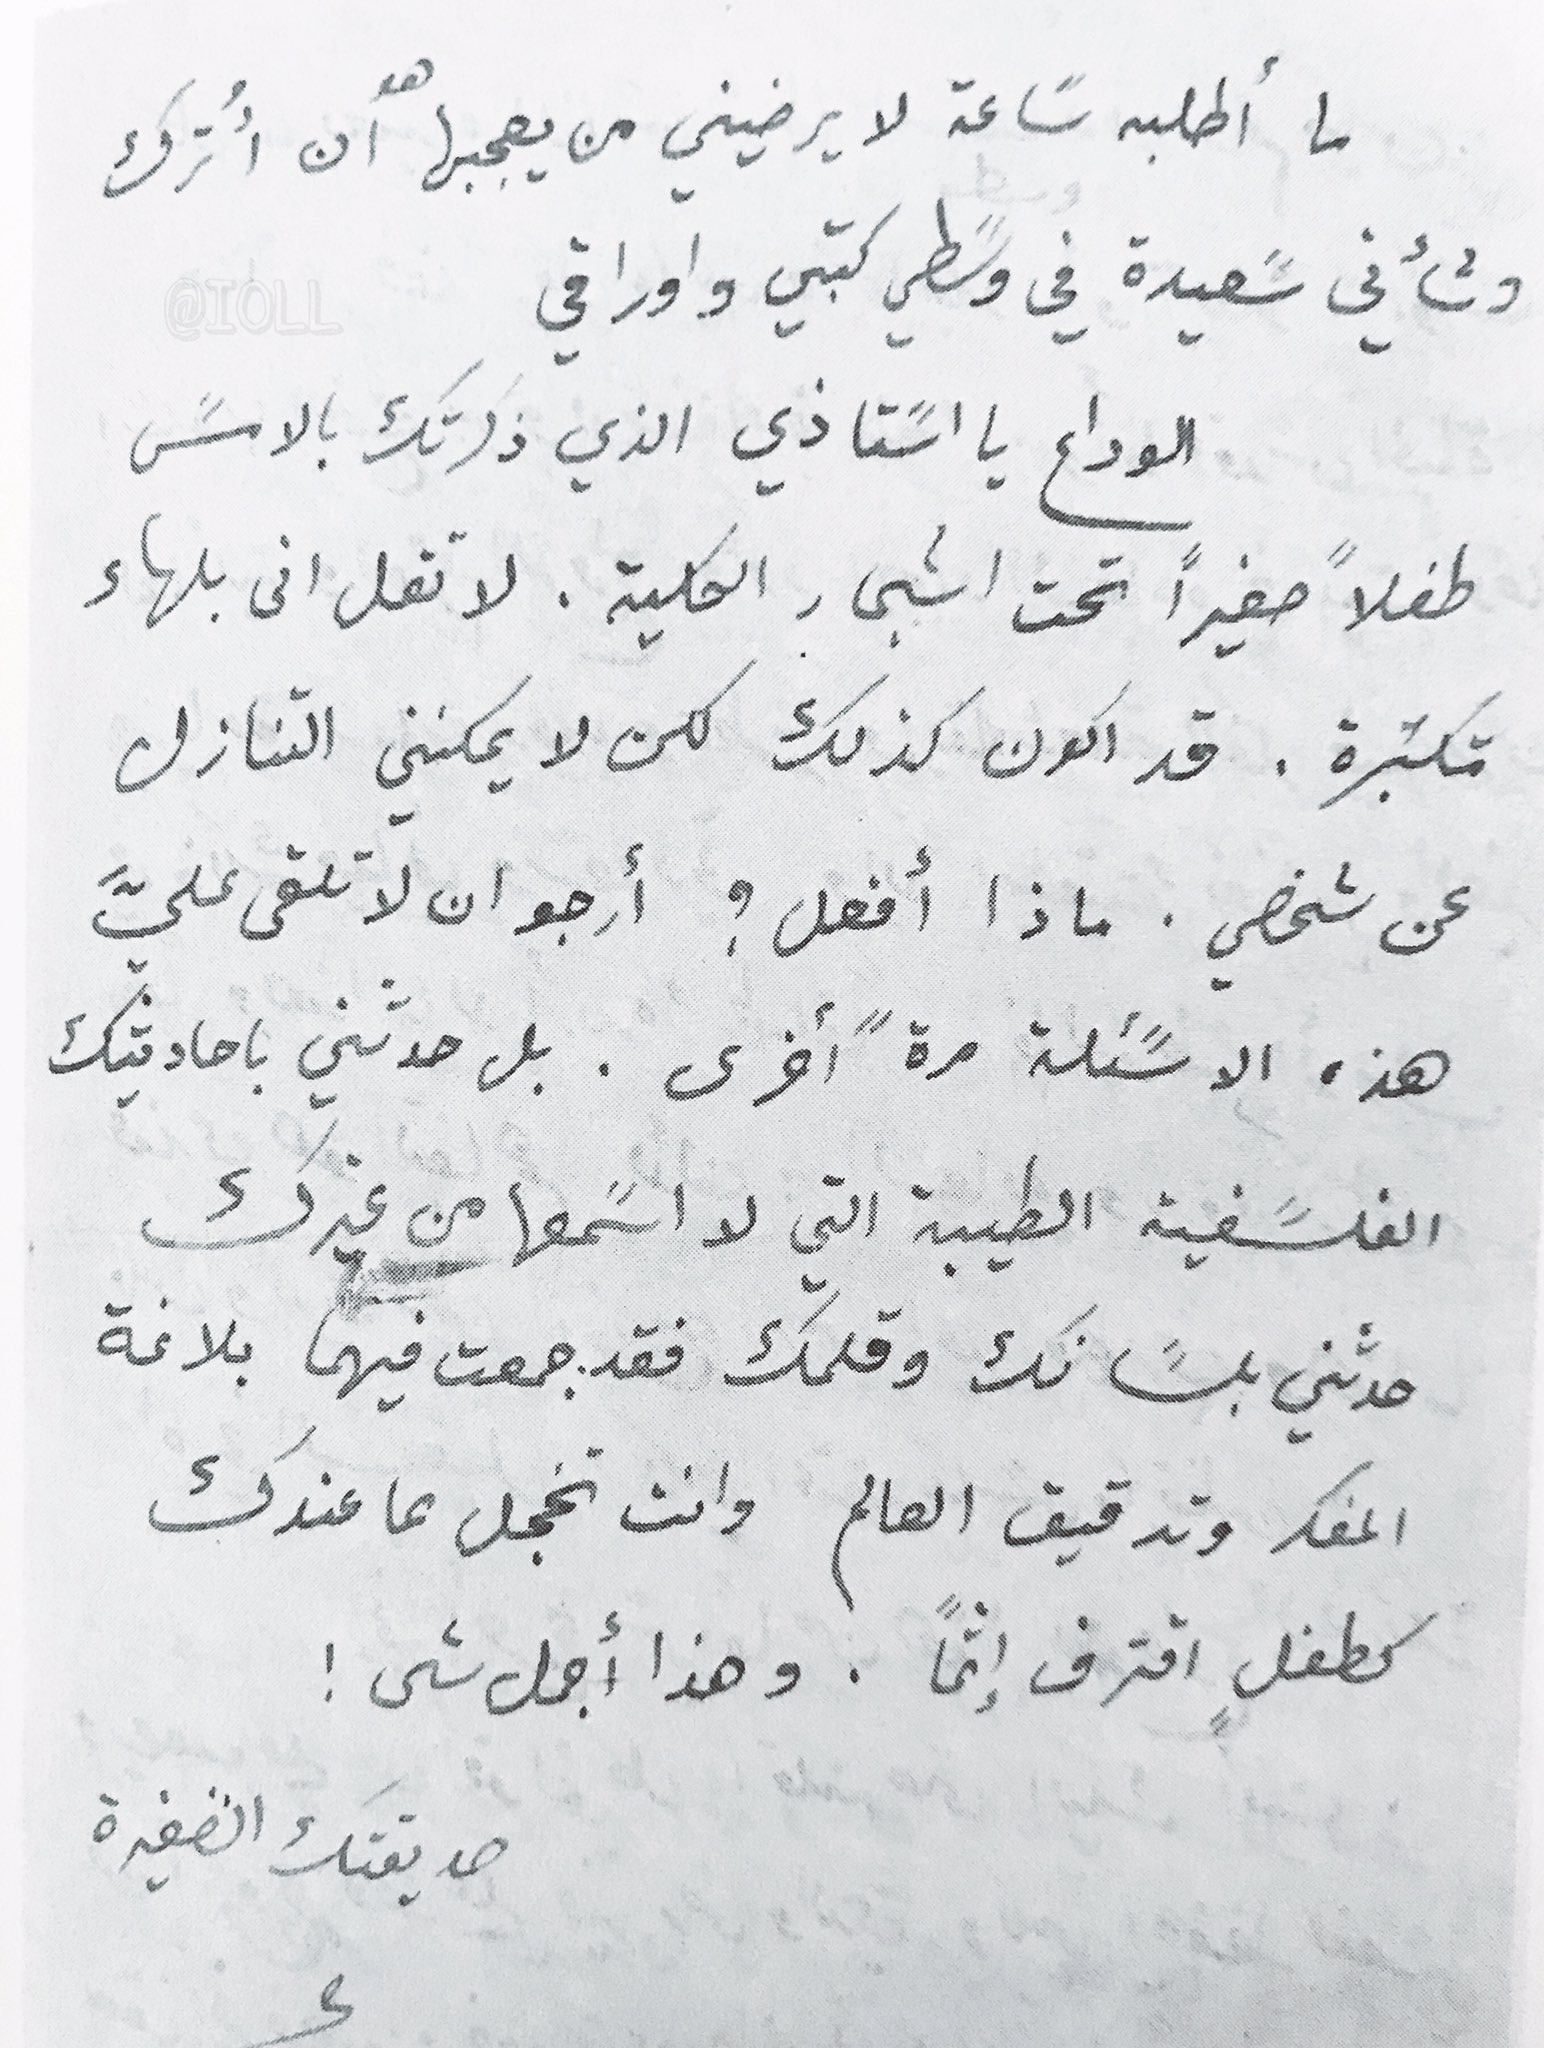 ما أطلبه سَاعة لا يرضيني من يعجبها هو أن أُترك
وشأني سَعيدة في وسَطي كتبي واوراقي
@IOLL
الوداع يا اسَتاذي الذي ذكرتك بالامسَ
طفلاً صغيراً تحت اشجار الكلية . لا تقل انى بلهاء
متكبرة . قد اكون كذلك لكن لا يمكنني التنازل
عن شخصي . ماذا أفعل ؟ أرجو ان لا تلقى عليَّ
هذه الاسَئلة مرةً أخرى . بل حدثني باحاديثك
الفلسَفية الطيبة التي لا اسَمعها من غيرك
حدثني بلسَانك وقلمك فقد جمعت فيهما بلاغة
المفكر وتدقيق العالم وانت تخجل مما عندك
كطفلٍ اقترف إثمًا . وهذا أجمل شى !
صديقتك الصغيرة